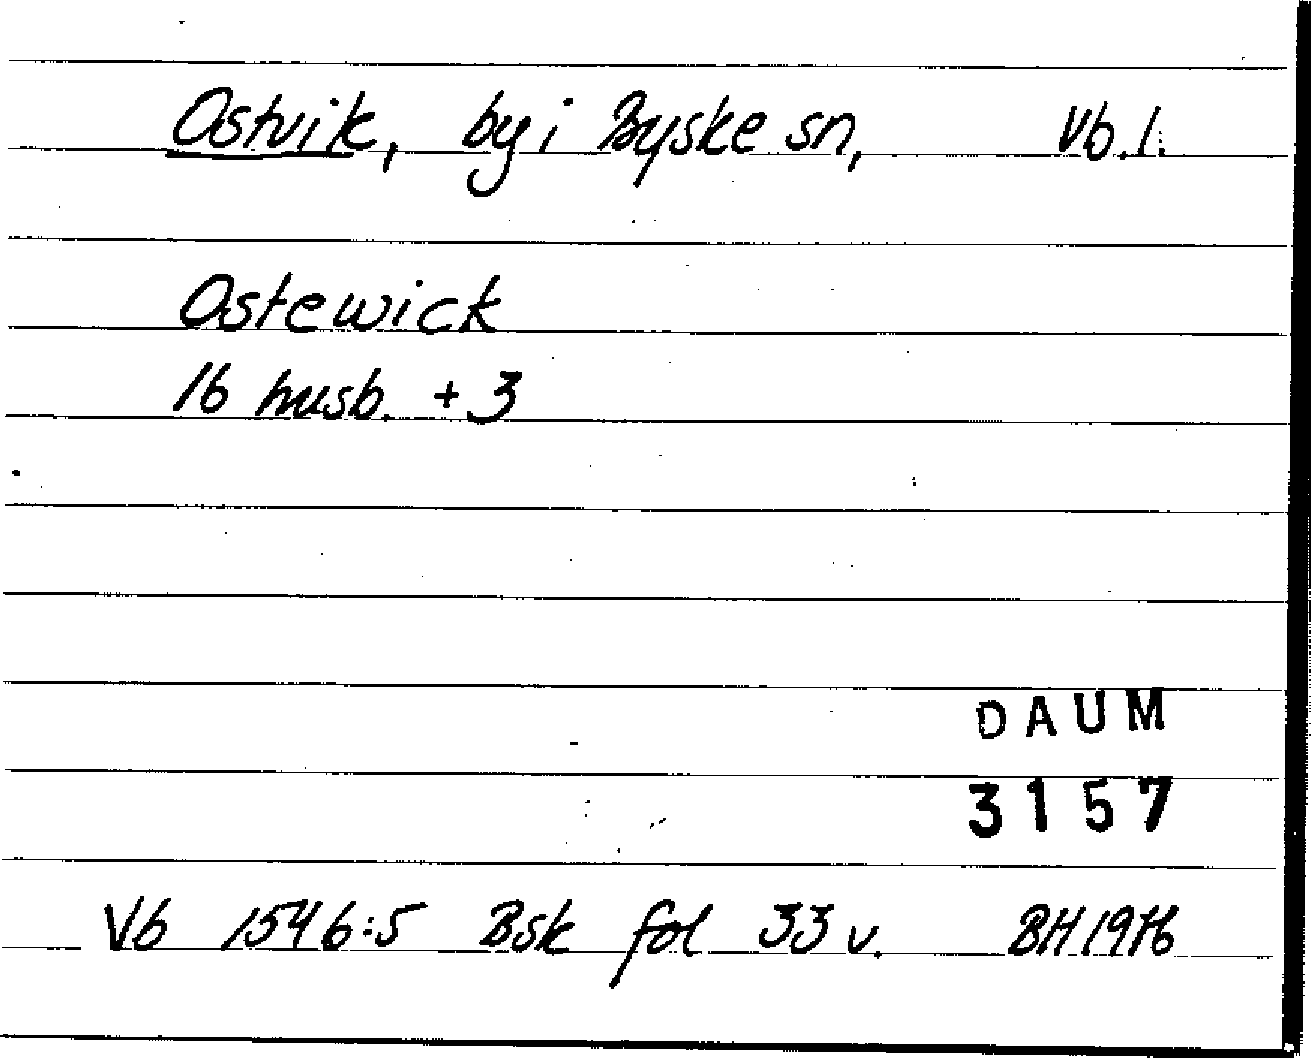 Ostvik, by i Byske sn, Vb. l.
Ostewick
16 husb. + 3
DAUM
3157
Vb 1546:5 Bsk fol 33 v. BH 1976